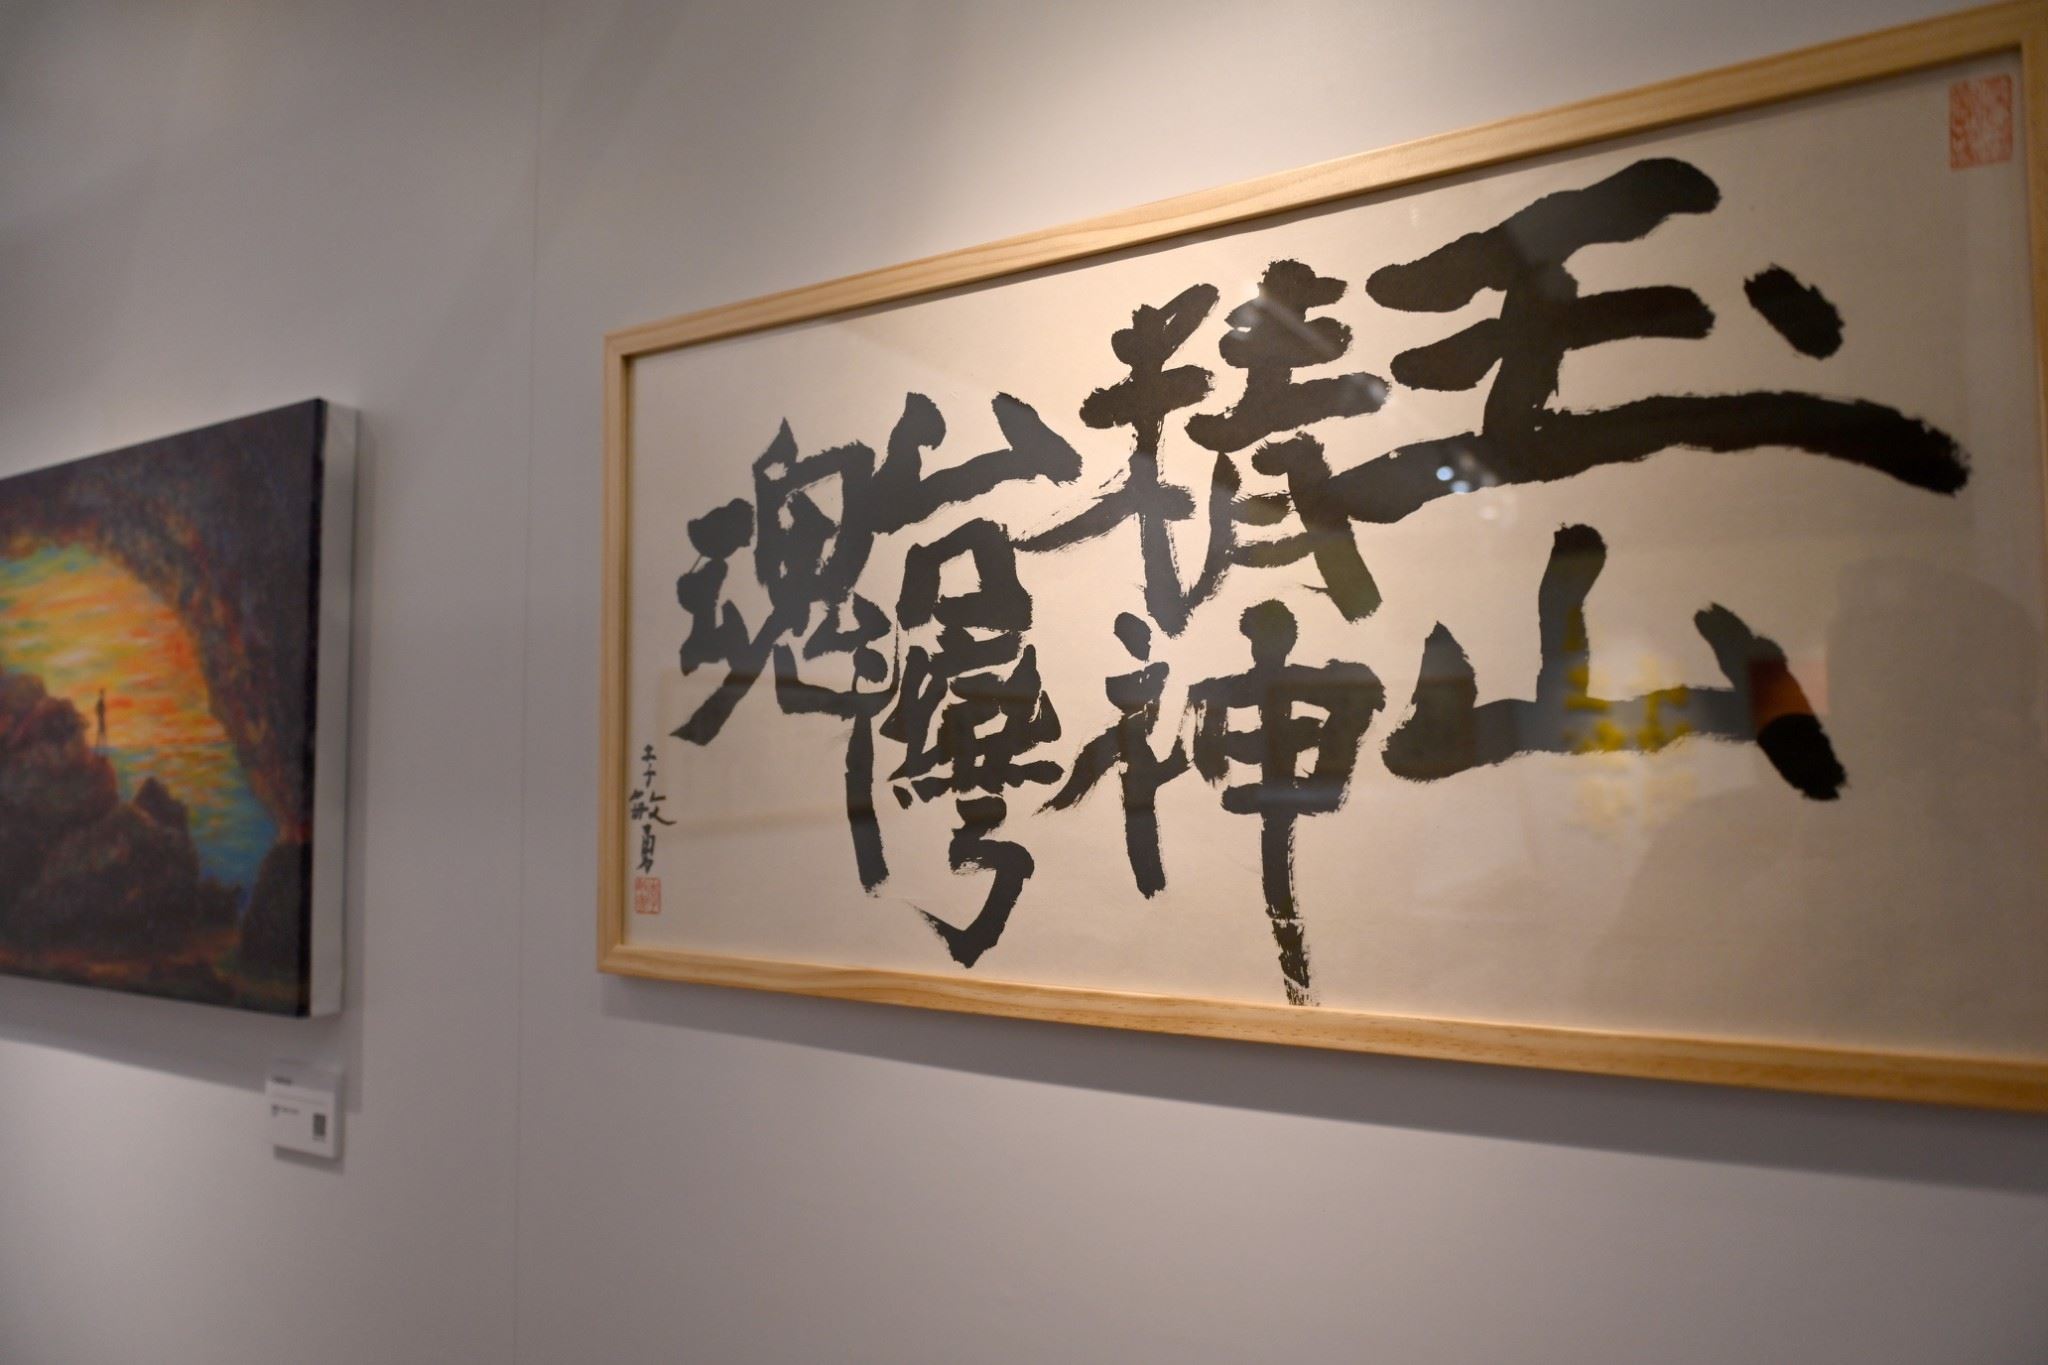 玉山
精神
台灣
魂
李敏勇